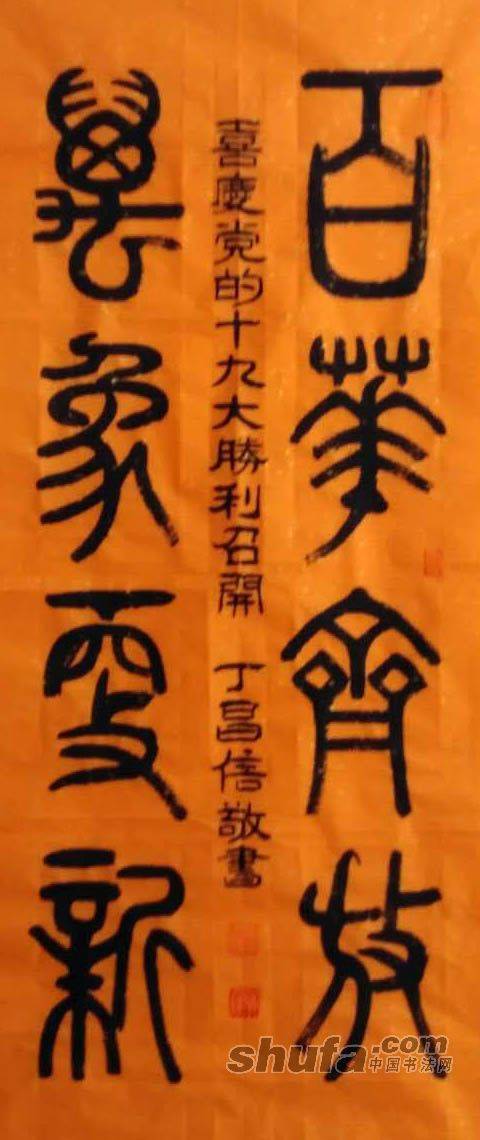 百華齊放
萬象更新
喜慶党的十九大勝利召開 丁昌信敬書
shufa.com
中国书法网